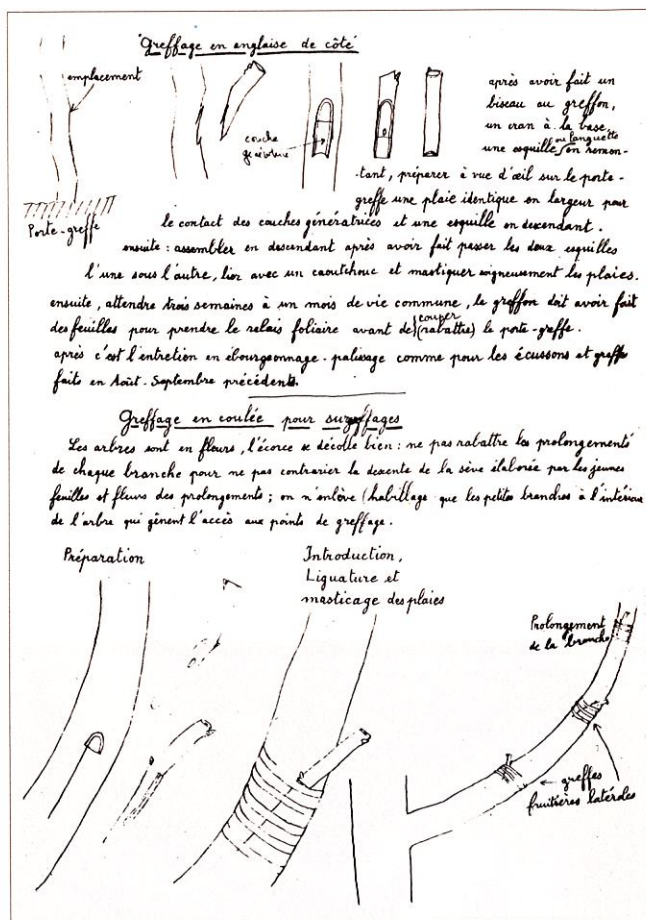 Greffage en anglaise de côté
emplacement
Porte-greffe
couche
génératrice
après avoir fait un
biseau au greffon,
un cran à la base,
ou languette
une esquille en remon-
tant, préparer à vue d'œil sur le porte-
greffe une plaie identique en largeur pour
le contact des couches génératrices et une esquille en descendant.
ensuite : assembler en descendant après avoir fait passer les deux esquilles
l'une sous l'autre, lier avec un caoutchouc et mastiquer soigneusement les plaies.
ensuite, attendre trois semaines à un mois de vie commune, le greffon doit avoir fait
couper
des feuilles pour prendre le relais foliaire avant de (rabattre) le porte-greffe.
après c'est l'entretien en ébourgeonnage - palissage comme pour les écussons et greffes
faits en Août - Septembre précédents.
Greffage en coulée pour surgreffages
Les arbres sont en fleurs, l'écorce se décolle bien : ne pas rabattre les prolongements
de chaque branche pour ne pas contrarier la descente de la sève élaborée par les jeunes
feuilles et fleurs des prolongements ; on n'enlève (habillage que les petites branches à l'intérieur
de l'arbre qui gênent l'accès aux points de greffage.
Préparation
Introduction,
Liguature et
masticage des plaies
Prolongement
de la branche
greffes
fruitières latérales